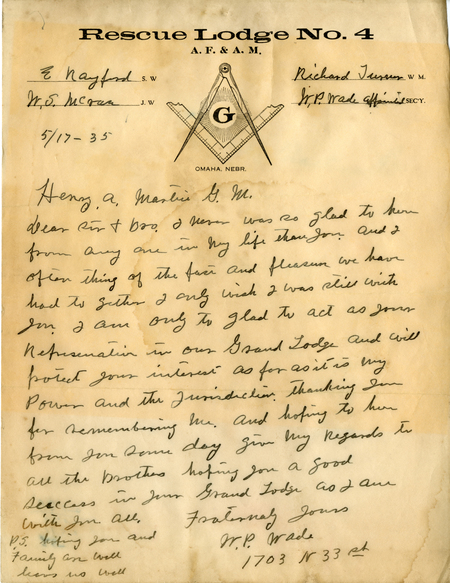 Rescue Lodge No. 4
A. F. & A. M.
E Rayford S. W.
Richard Turner W M.
W. S. McVan J. W.
W. P. Wade SECY.
5/17-35
G
OMAHA, NEBR.
Henry A. Martin G. M.
Dear Sir & Bro. I never was so glad to hear
from any one in my life than you. and I
often thing of the fact and pleasure we have
had to gether I only wish I was still with
you. I am only to glad to act as your
Represenative in our Grand Lodge and will
protect your interest as far as it is my
Power and the Jurisdiction. thanking you
for remembering me. and hoping to hear
from you some day give my regards to
all the brothers hoping you a good
success in your Grand Lodge as I am
with you all. Fraternaly Yours
P.S. hoping you and
W. P. Wade
Family are well
1703 N 33 st
leaves us well